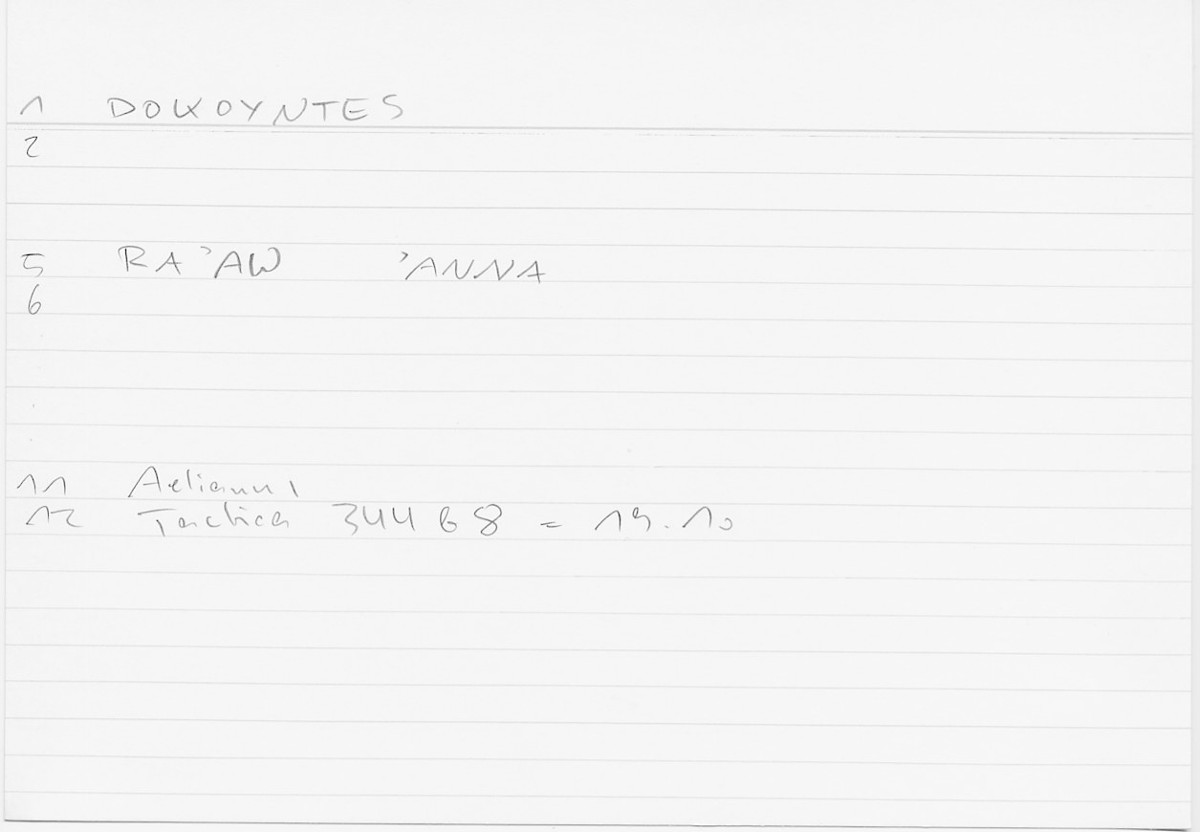 1 DOKOYNTES
2
5 RA'AW 'ANNA
6
11 Aelianus
12 Tactica 344 68 = 19.10